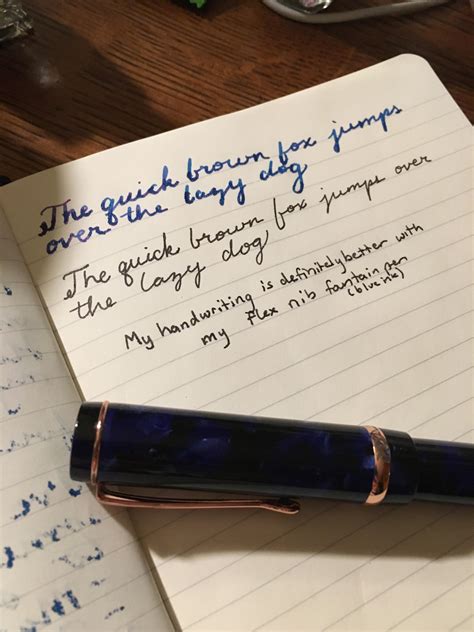 The quick brown fox jumps
over the lazy dog
The quick brown fox jumps over
the lazy dog
My handwriting is definitely better with
my flex nib fountain pen
(blue ink)